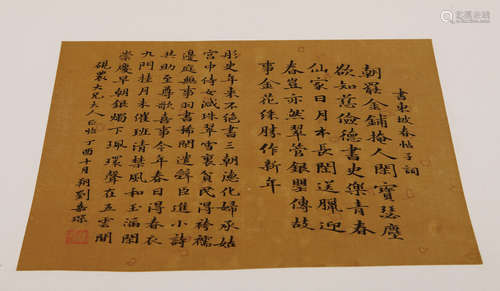 書東坡春帖子詞
朝罷金鋪掩人閒寶瑟塵
欲知慈儉德書史樂青春
仙家日月本長閒送臘迎
春豈亦然翠管銀罌傳故
事金花綵勝作新年
彤史年來不絕書三朝德化婦承姑
宮中侍女減珠翠雪裏貧民得袴襦
邊庭無事羽書稀閒遣辭臣進小詩
共助至尊歌喜事今年春日得春衣
九門挂月未催班清禁風和玉漏閒
崇慶早朝銀燭下珮環聲在五雲間
硯農大兄大人丁酉十月朔劉嘉琛